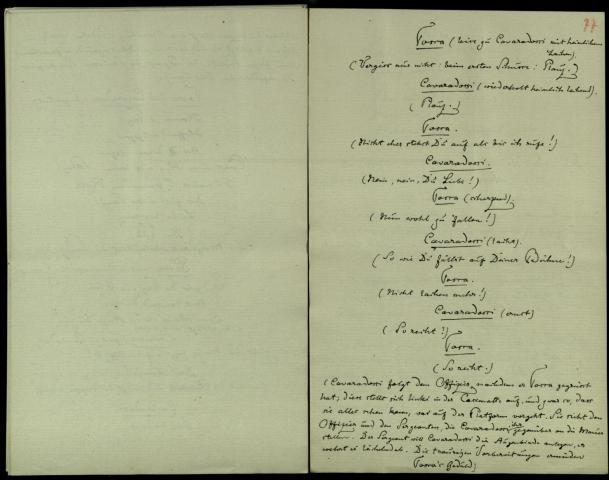 77
Tosca (leise zu Cavaradossi mit heimlichem
Lachen).
(Vergiss nur nicht: beim ersten Schuss: Plauz.)
Cavaradossi (wiederholt heimlich lachend).
(Plauz.)
Tosca.
(Nicht eher stehst Du auf als bis ich rufe!)
Cavaradossi.
(Nein, nein, Du Liebe!)
Tosca (scherzend).
(Nun wohl zu fallen!)
Cavaradossi (lacht).
(So wie Du fällst auf Deiner Bühne!)
Tosca.
(Nicht lachen mehr!)
Cavaradossi (ernst)
(So recht?)
Tosca.
(So recht.)
(Cavaradossi folgt dem Offizier, nachdem er Tosca gegrüsst
hat; diese stellt sich links in der Casematte auf, und zwar so, dass
sie alles sehen kann, was auf der Platform vorgeht. Sie sieht den
Offizier und den Sergeanten, die Cavaradossi ihr gegenüber an die Mauer
stellen. Der Sergeant will Cavaradossi die Augenbinde anlegen, er
wehrt es lächelnd ab. Die traurigen Vorbereitungen ermüden
Tosca's Geduld)